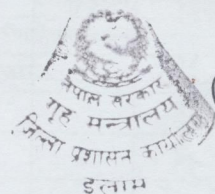 नेपाल सरकार
गृह मन्त्रालय
जिल्ला प्रशासन कार्यालय
इलाम